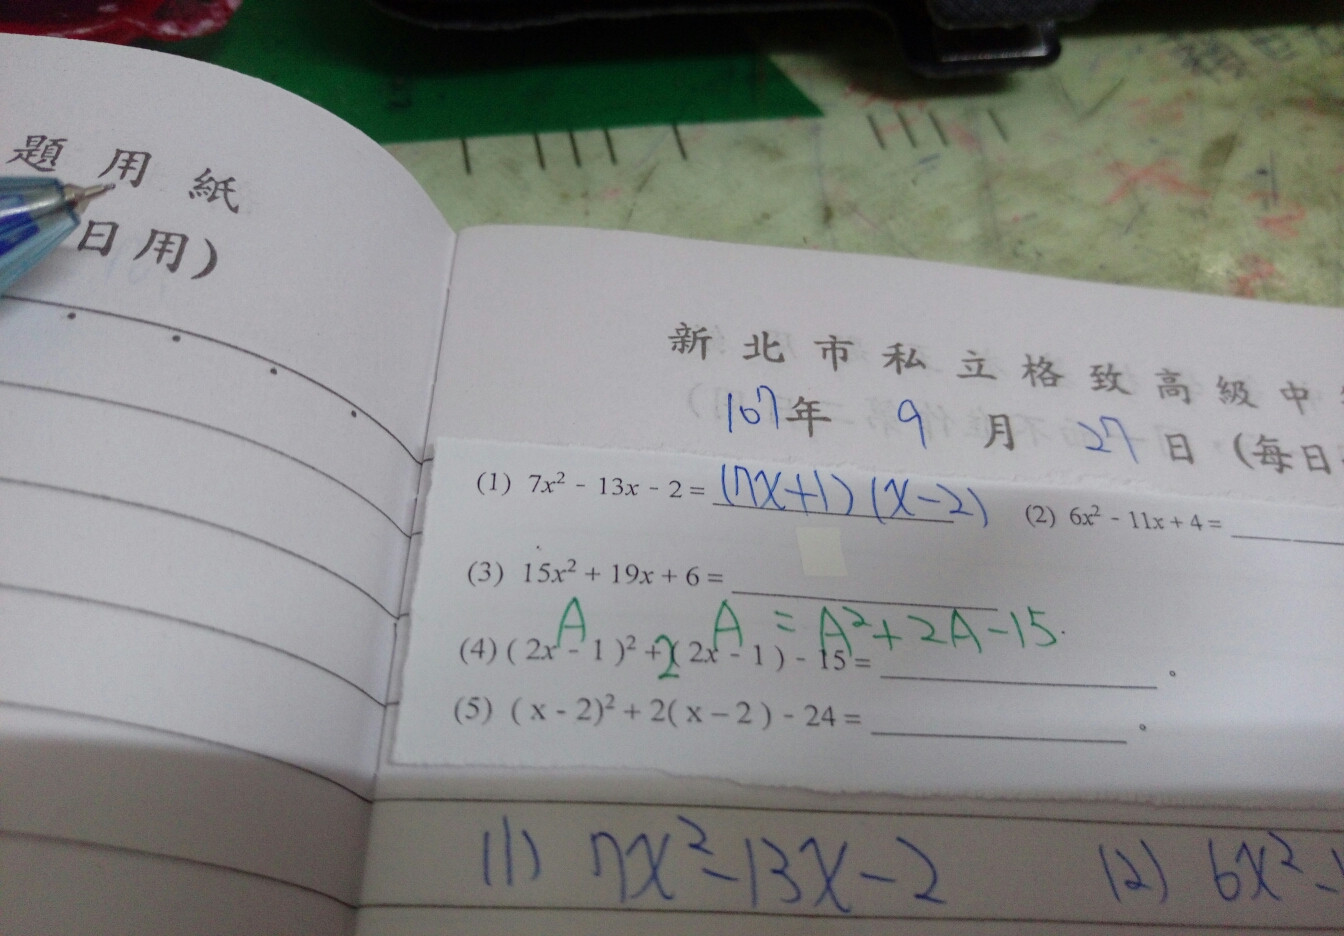 題用紙
日用)
新北市私立格致高級中
107年 9月 27日 (每日
(1) 7x² - 13x - 2 = (7x+1)(x-2) (2) 6x² - 11x + 4 =
(3) 15x² + 19x + 6 =
A A = A²+2A-15.
(4) ( 2x - 1 )² + 2( 2x - 1 ) - 15 = 。
(5) ( x - 2)² + 2( x - 2 ) - 24 = 。
(1) 7x²-13x-2 (2) 6x²-